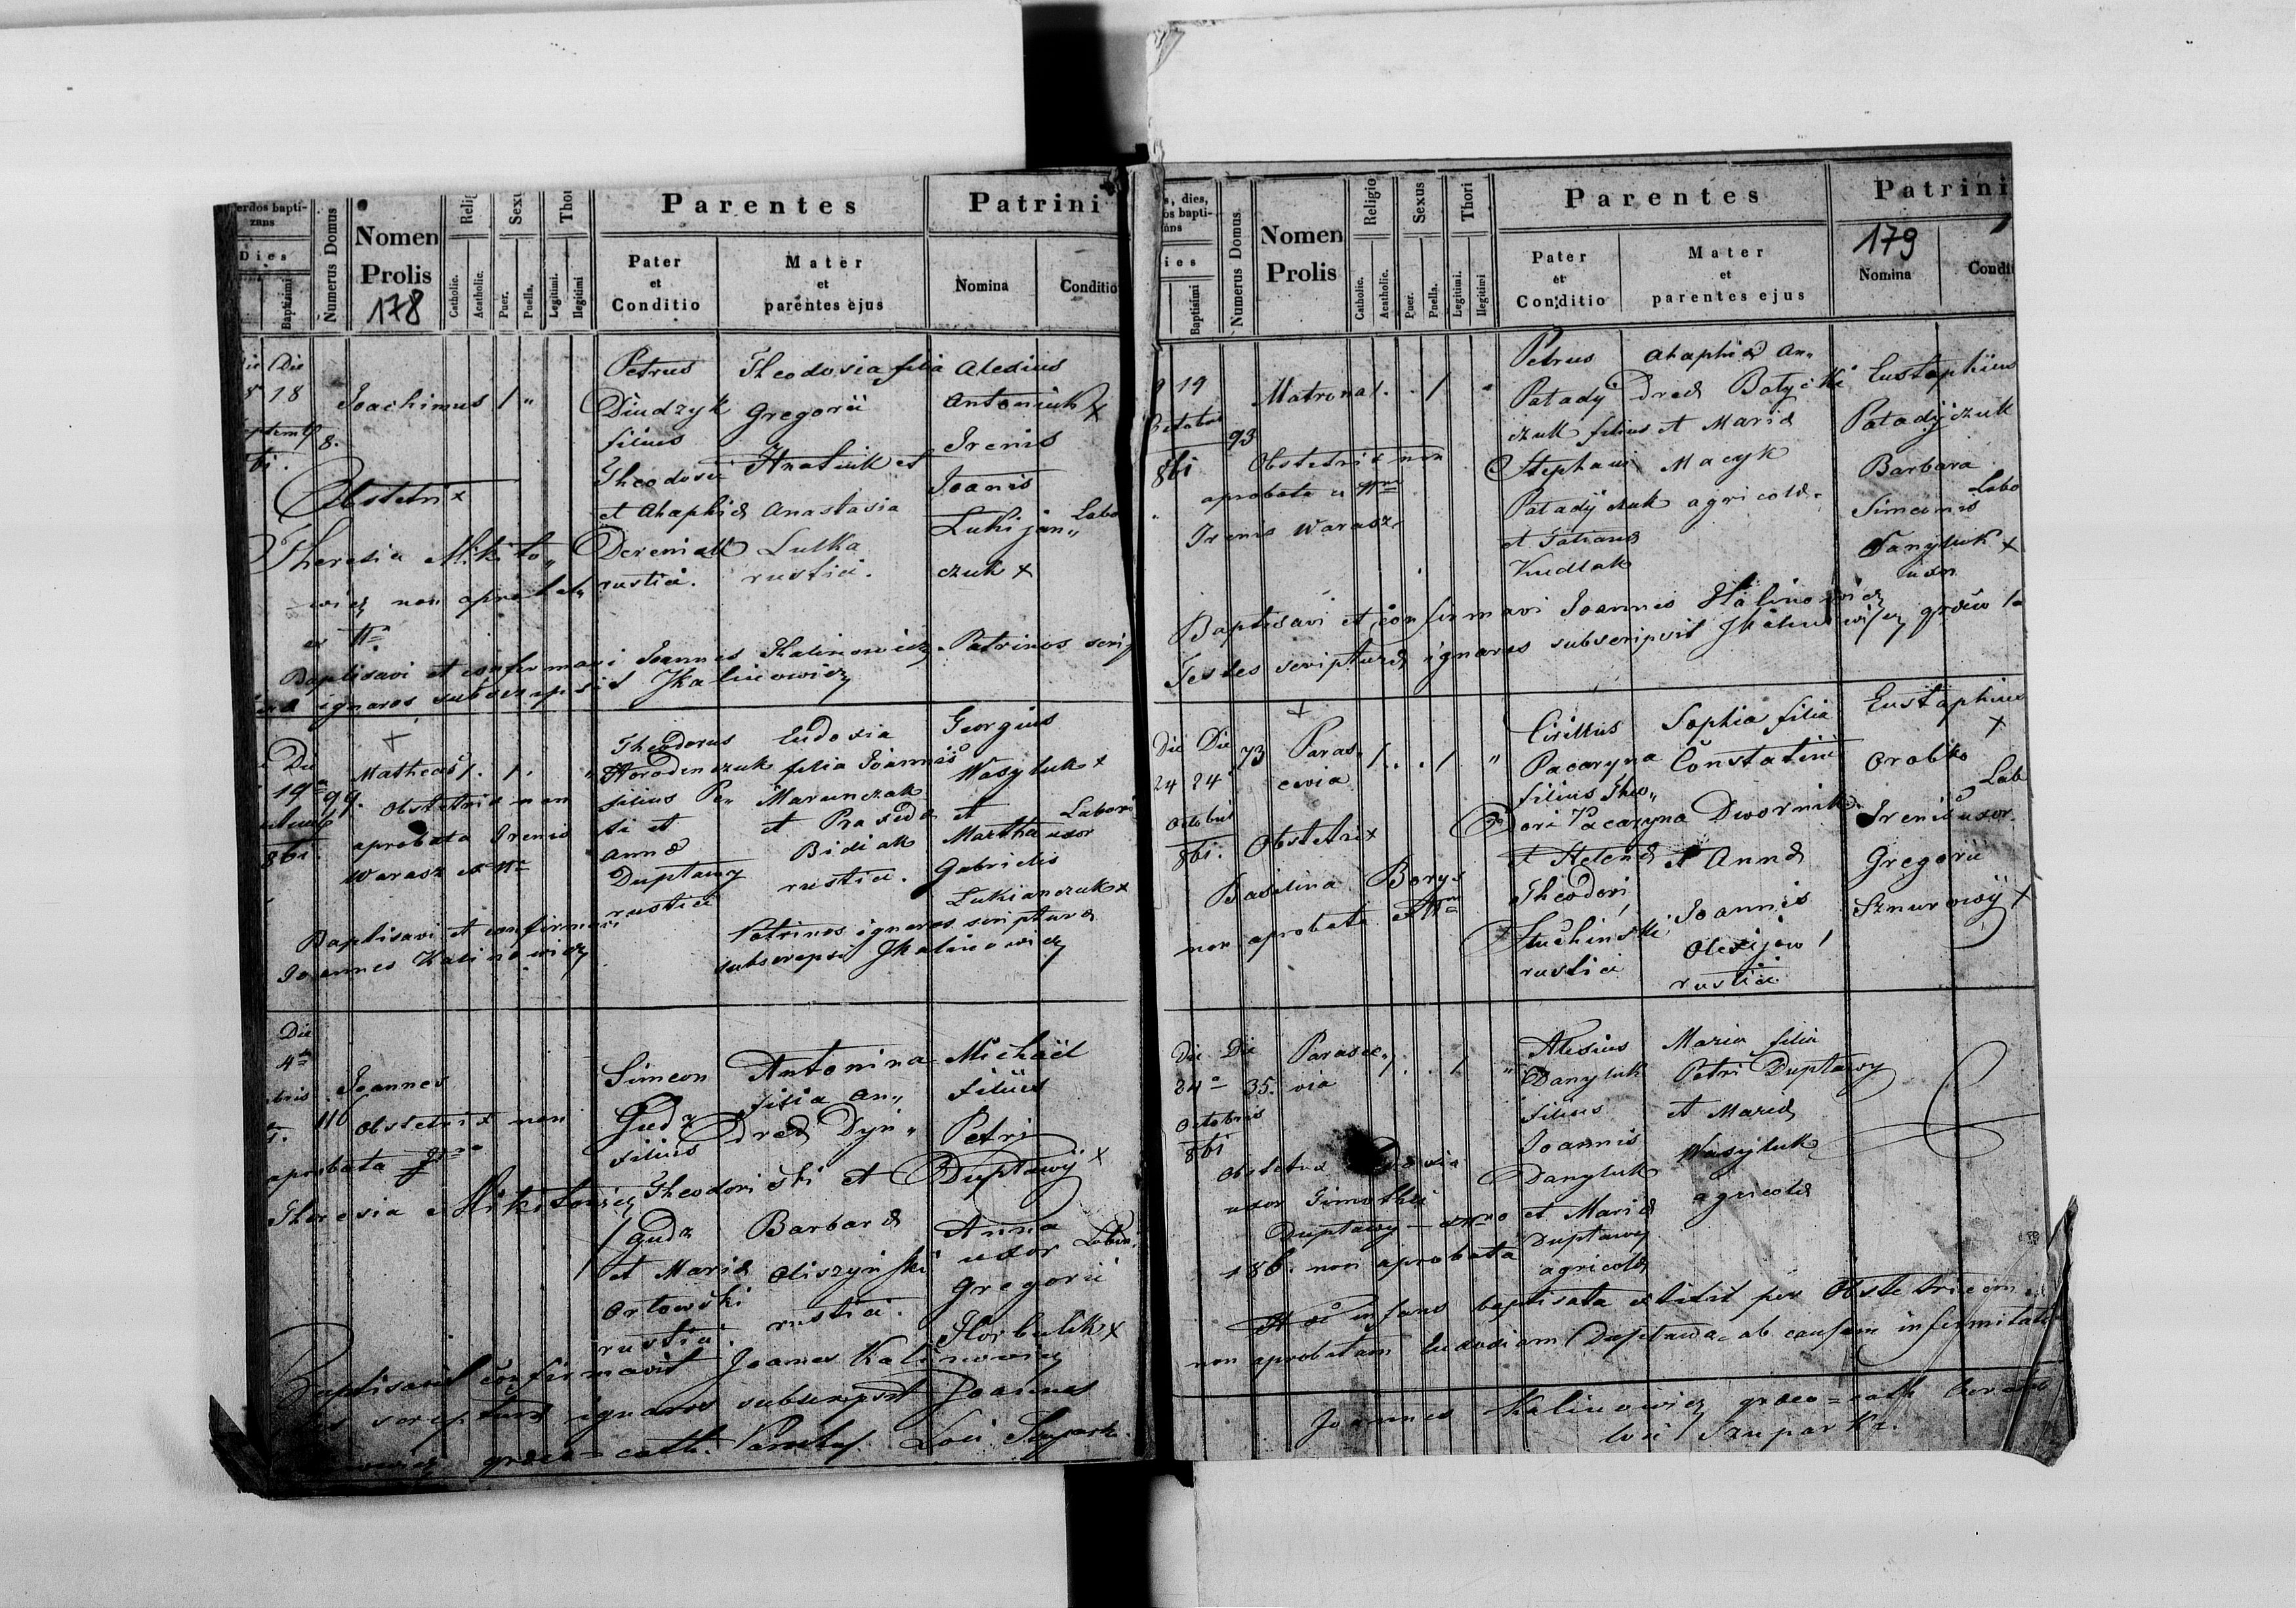 erdos bapti-
zans
Dies
Baptisimi
Numerus Domus
Nomen
Prolis
178
Relig
Catholic.
Acatholic.
Sexu
Puer.
Puella.
Thori
Legitimi.
Ilegitimi
Parentes
Pater
et
Conditio
Mater
et
parentes ejus
Patrini
Nomina
Conditio
Die
18
8.
Joachimus 1 "
Obstetrix
Theresia Mikito„
wicz non aprobata
Petrus
Diudzyk
filius
Theodosii
et Ahaphiæ
Deremall
rustici.
Theodosia filia
Gregorii
Hnatiuk et
Anastasia
Lutka
rustici.
Alexius
Antoniuk x
Irenis
Joanis
Lukijan„
czuk x
Labo
Baptisavi et confirmavi Joannes Kalinowicz. Patrinos scrip
ignaros subscripsit JKalinowicz
Die
19
99.
8bi.
Matheas 1. 1.
Obstetrix non
aprobata Irenis
Warasz
Theodorus
Horodenczuk
filius Pe„
tri et
Annæ
Duptawy
rustici
Eudoxia
filia Joannis
Marunczak
et Praxeda
Bidiak
rustici.
Georgius
Wasyluk x
et
Martha uxor
Gabrielis
Lukianczuk x
Labori
Baptisavi et confirmavi
Joannes Kalinowicz
Patrinos ignaros scripturæ
subscripsi JKalinowicz
Die
4
110
Joannes
Obstetrix non
aprobata
Theresia Mikitowicz
Simeon
Gudz
filius
Theodori
Gudz
et Mariæ
Ortowski
rustici.
Antonina
filia An„
dreæ Dyn„
ski et
Barbaræ
Oliszynski
rustici.
Michaël
Filius
Petri
Duptawÿ x
Anna
uxor
Gregorii
Horbulik x
Labori
Baptisavit confirmavit Joanes Kalinowicz
scripturæ ignaros subscripsit Joannes
græco-cath. Loci
s, dies,
os bapti-
zans
ies
Baptisimi
Numerus Domus
Nomen
Prolis
Religio
Catholic.
Acatholic.
Sexus
Puer.
Puella.
Thori
Legitimi.
Ilegitimi
Parentes
Pater
et
Conditio
Mater
et
parentes ejus
Patrini
179
Nomina
Condit
19
93
8bi
Matrona 1. . 1 "
Obstetrix non
aprobata
Irenis Warasz
Petrus
Patady
czuk filius
Stephani
Patadÿczuk
et Tatianæ
Kudlak
Ahaphia An„
dreæ Batycki
et Mariæ
Macyk
agricolæ
Eustaphius
Patadÿczuk
Barbara
Simeonis
Danyluk x
uxor
Labo
Baptisavi et confirmavi Joannes Kalinowicz
Testes scripturæ ignaros subscripsit JKalinowicz græco
Die Die
24 24
Octobris
8bi.
73
Paras„
cevia
1. . 1 "
Obstetrix
Basilina Borys
non aprobata
Cirillus
Pacaryna
filius Theo„
dori Pacaryna
et Helenæ
Theodori
rustici
Sophia filia
Constatini
Dwornik
et Annæ
Joannis
Olexijow
rustici
Eustaphius
x
Orobko
Irenis uxor
Gregorii
Sznurowÿ x
Lab
Die Die
24ª
Octobris
8bi
35.
Parasce„
via
1. . 1 "
Obstetrix
uxor Timothei
Duptawy
186. non aprobata
Alexius
Danyluk
filius
Joannis
Danyluk
et Mariæ
Duptawy
agricolæ
Maria filia
Petri Duptawy
et Mariæ
Wasyluk
agricolæ
infans baptisata extitit per Obstetricem
non aprobatam Eudoxiam Duptawa ab causam infirmitatis
Joannes Kalinowicz græco=cath Curatus
loci Szuparka.